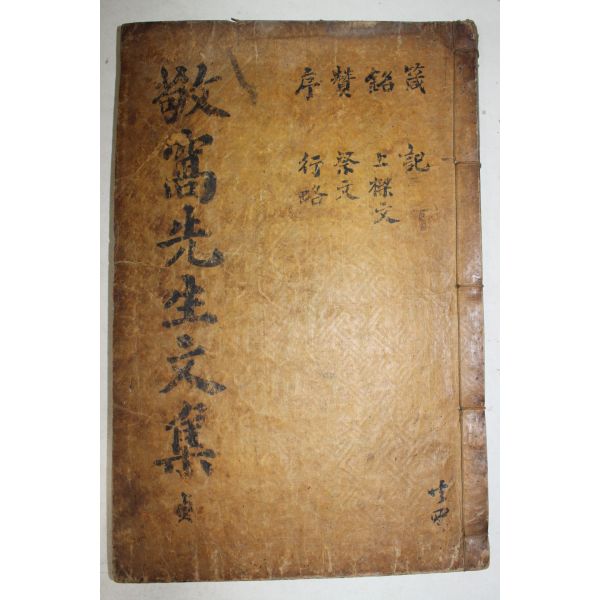 箴 記
銘 上樑文
贊 祭文
序 行略
敬窩先生文集 貞
共四